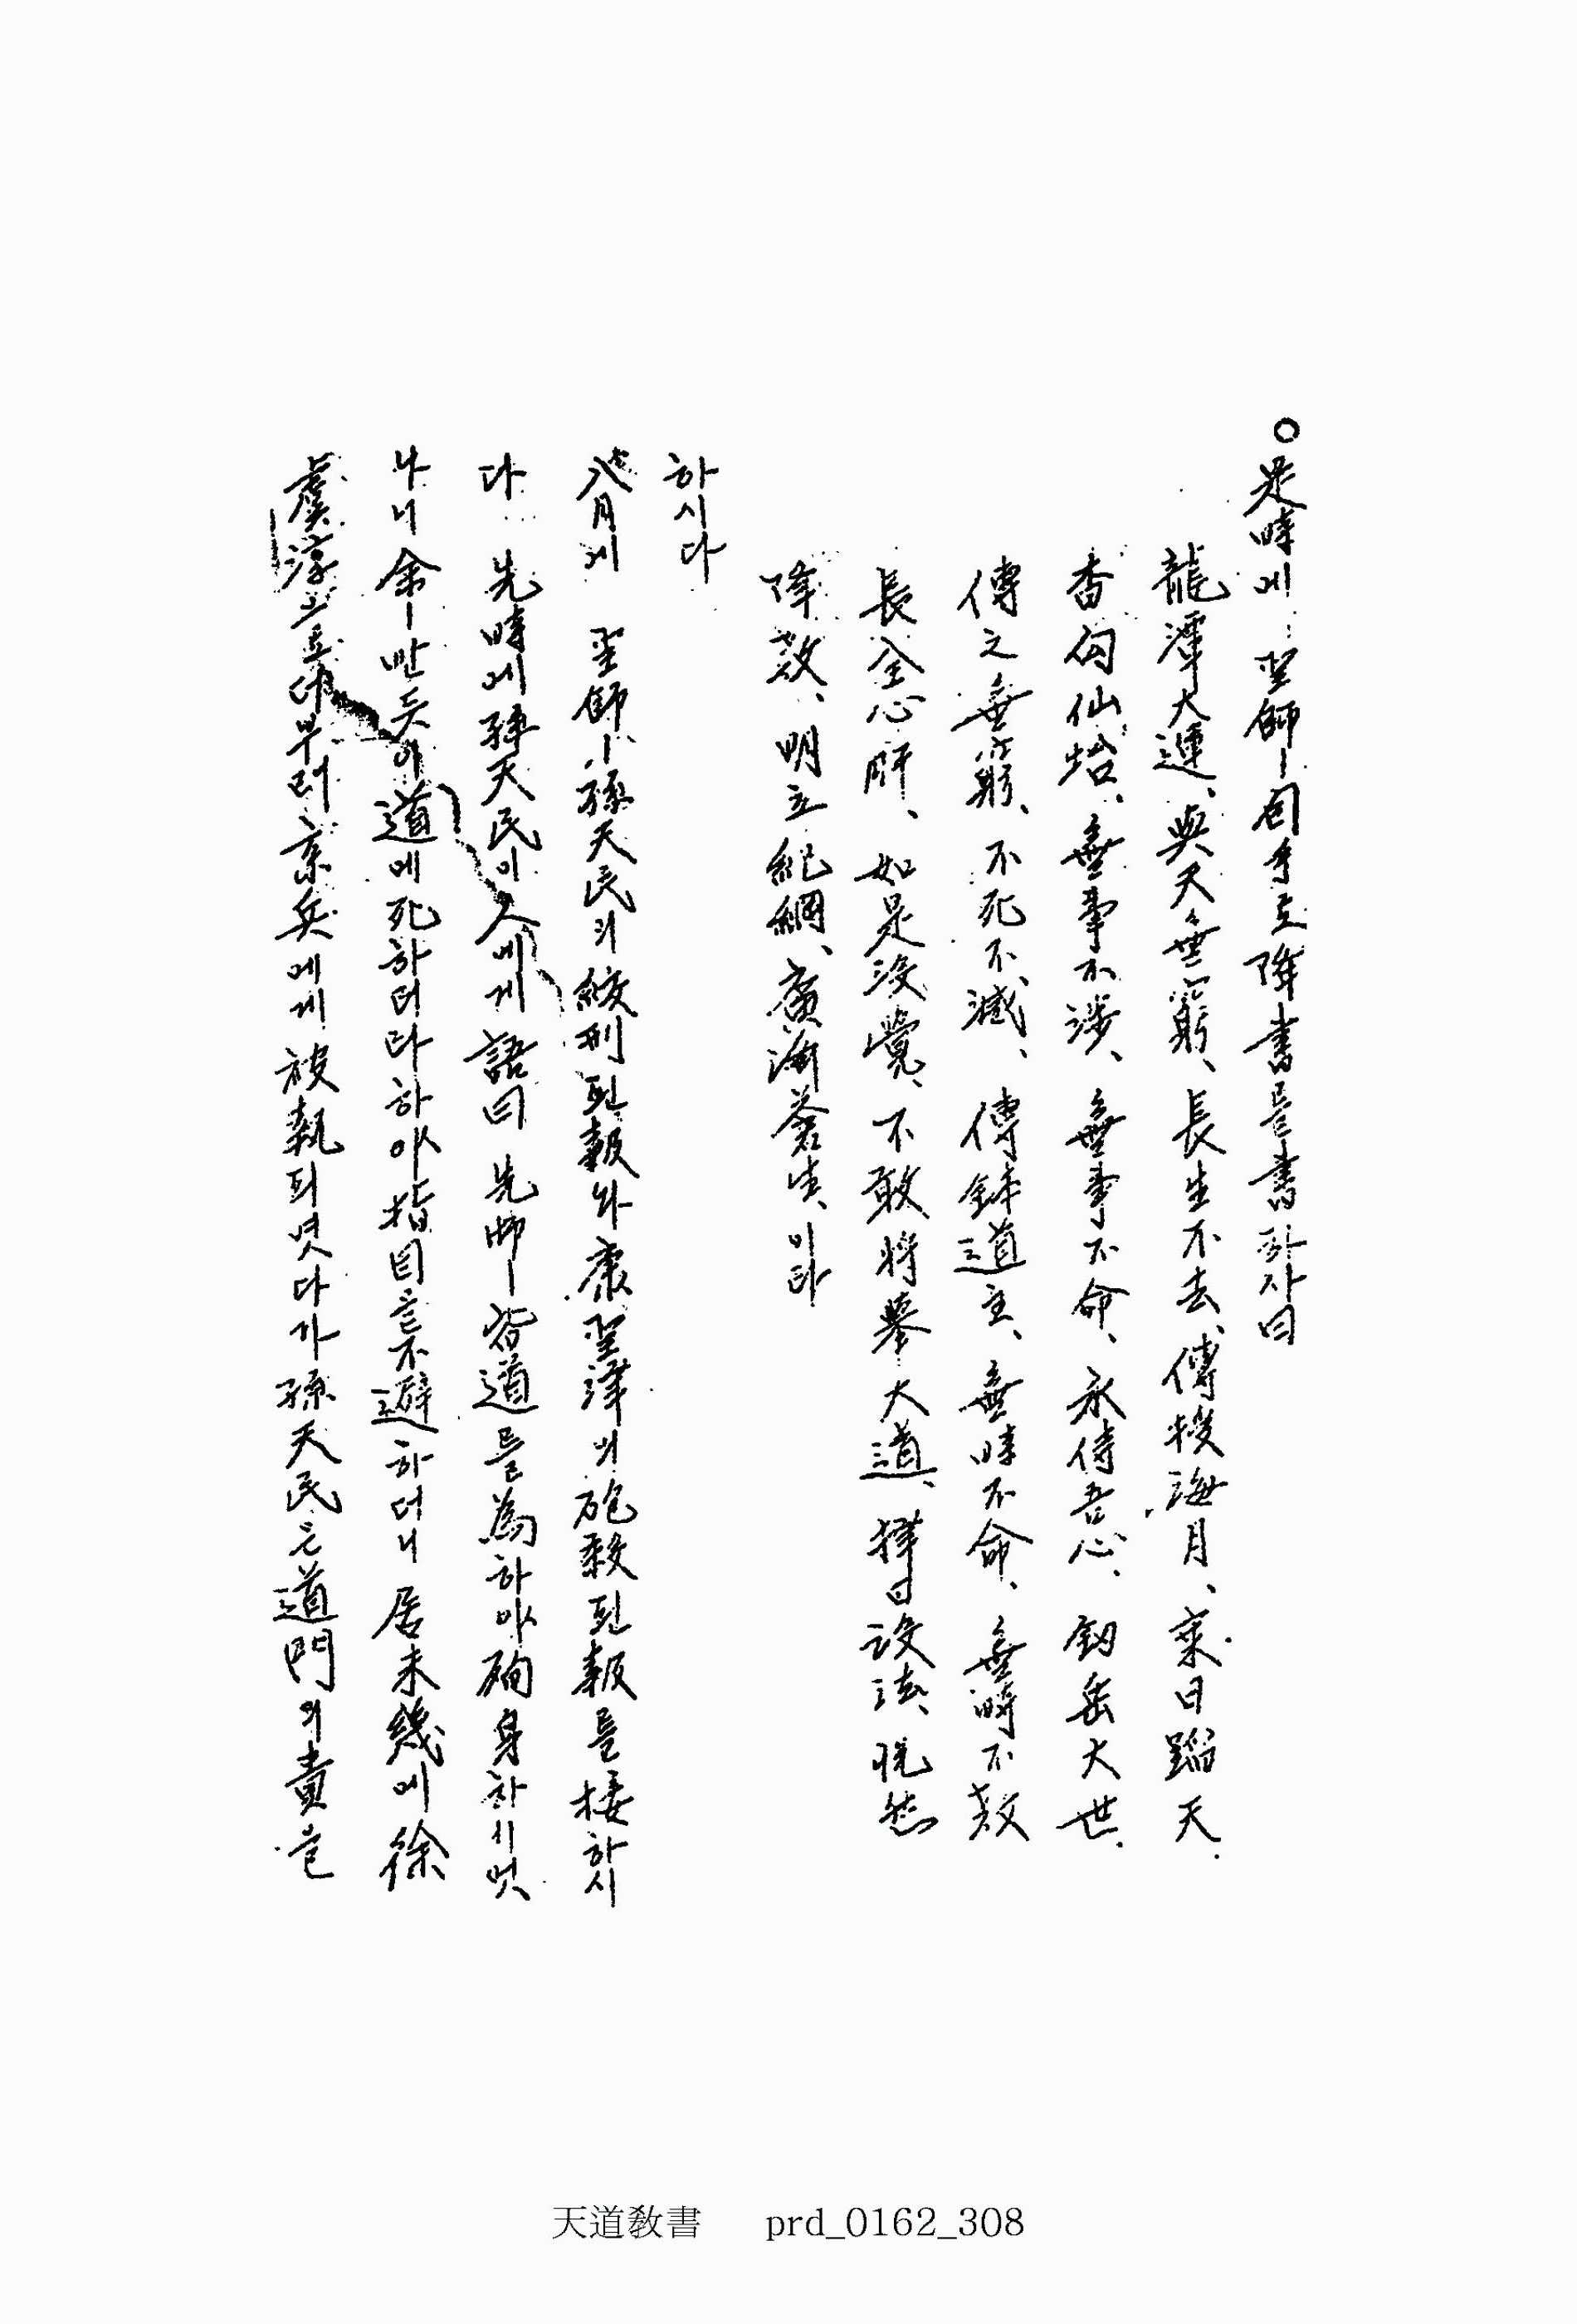 ○是時에 聖師ㅣ自手로降書를書하사曰
龍潭大運、與天無窮、長生不去、傳授海月、乘日蹈天、
杳向仙坮、無事不涉、無事不命、永侍吾心、釼岳大世、
傳之無窮、不死不滅、傳鉢道主、無時不命、無時不敎
長全心肝、如是沒覺、不敢將擧大道、擇日設法、恍然
降敎、明立紀綱、廣濟蒼生、이라
하시다
八月에 聖師ㅣ孫天民의絞刑된報와 聖澤의砲殺된報를接하시
다 先時에孫天民이人에게語曰 先師ㅣ皆道를爲하야殉身하시엿
나니余ㅣ만듯이道에死하더라하야指目을不避하더니居未幾에徐
虞淳으로더부러京兵에게被執되엿다가孫天民은道門의責을